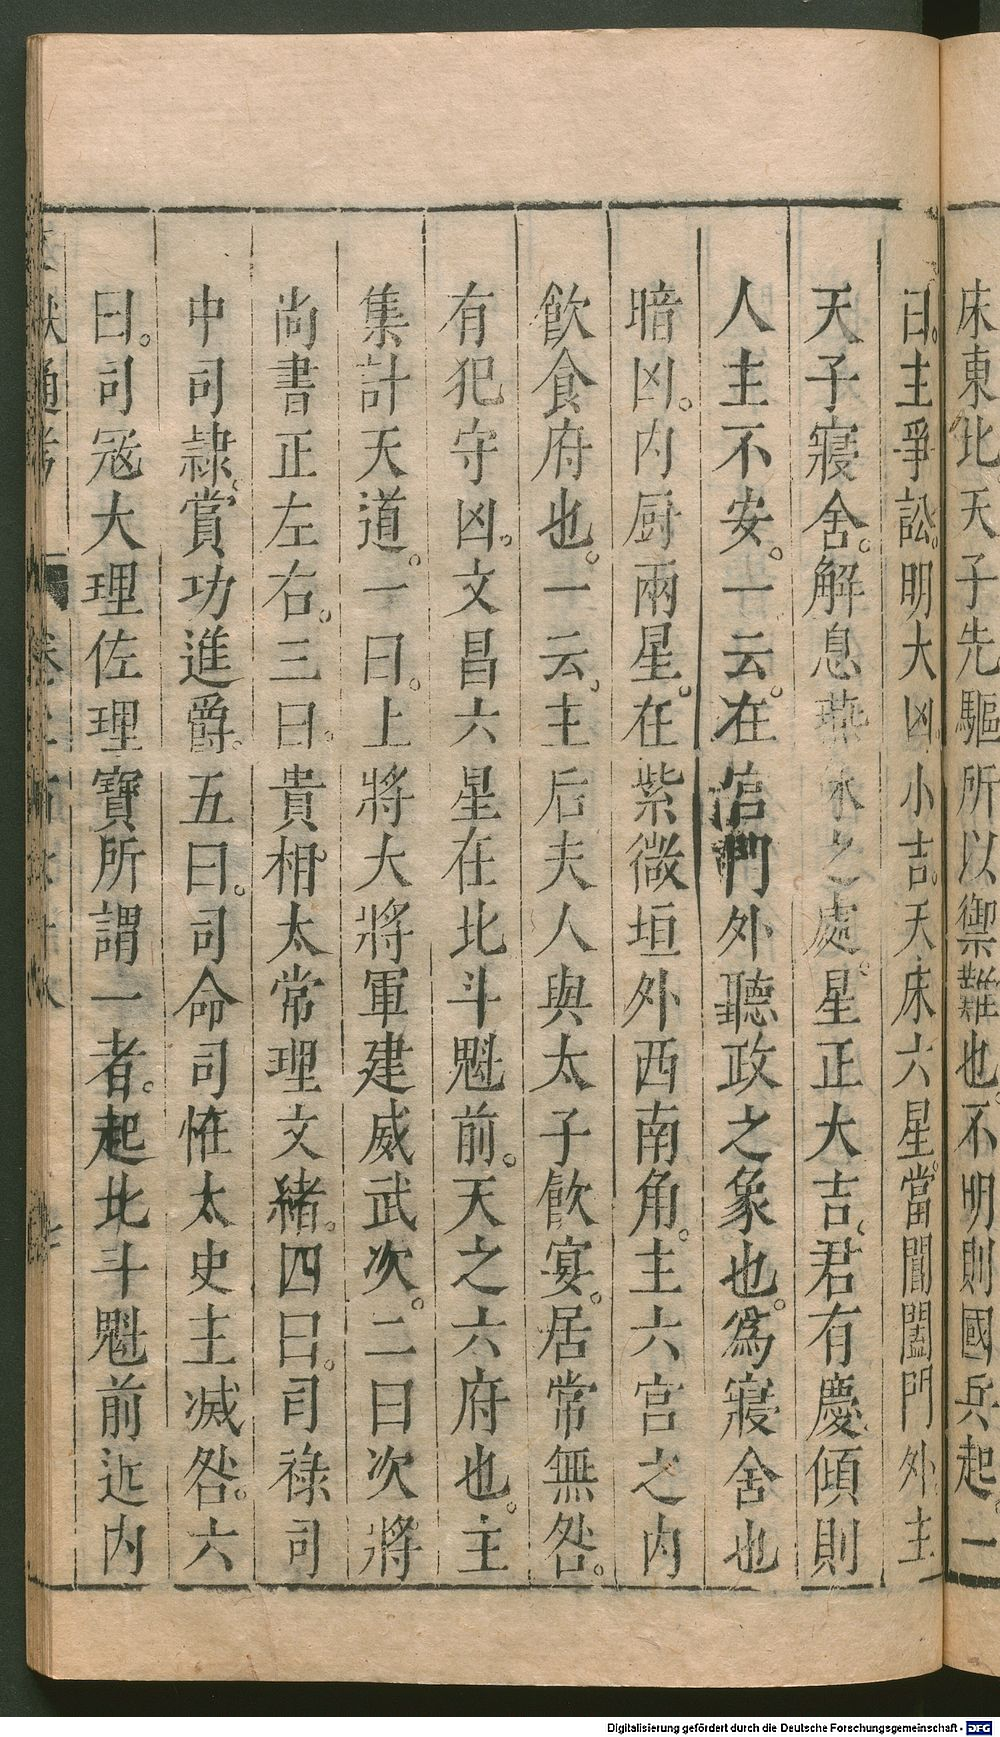 床東北天子先驅所以禦難也。不明則國兵起。一
曰。主爭訟。明大凶小吉天床六星。當閶闔門外。主
天子寢舍。解息燕休之處。星正大吉。君有慶。傾則
人主不安。一云。在閶門外聽政之象也。爲寢舍也
暗凶。内厨兩星。在紫微垣外西南角。主六宫之内
飲食府也。一云。主后夫人與太子飲宴。居常無咎。
有犯守凶。文昌六星在北斗魁前。天之六府也。主
集計天道。一曰。上將大將軍建威武次。二曰次將
尚書正左右。三曰。貴相。太常理文緒。四曰。司祿司
中司隷。賞功進爵。五曰。司命司恠太史主滅咎。六
曰。司冦大理佐理寶所謂一者。起北斗魁前近内
獻通考
Digitalisierung gefördert durch die Deutsche Forschungsgemeinschaft - DFG